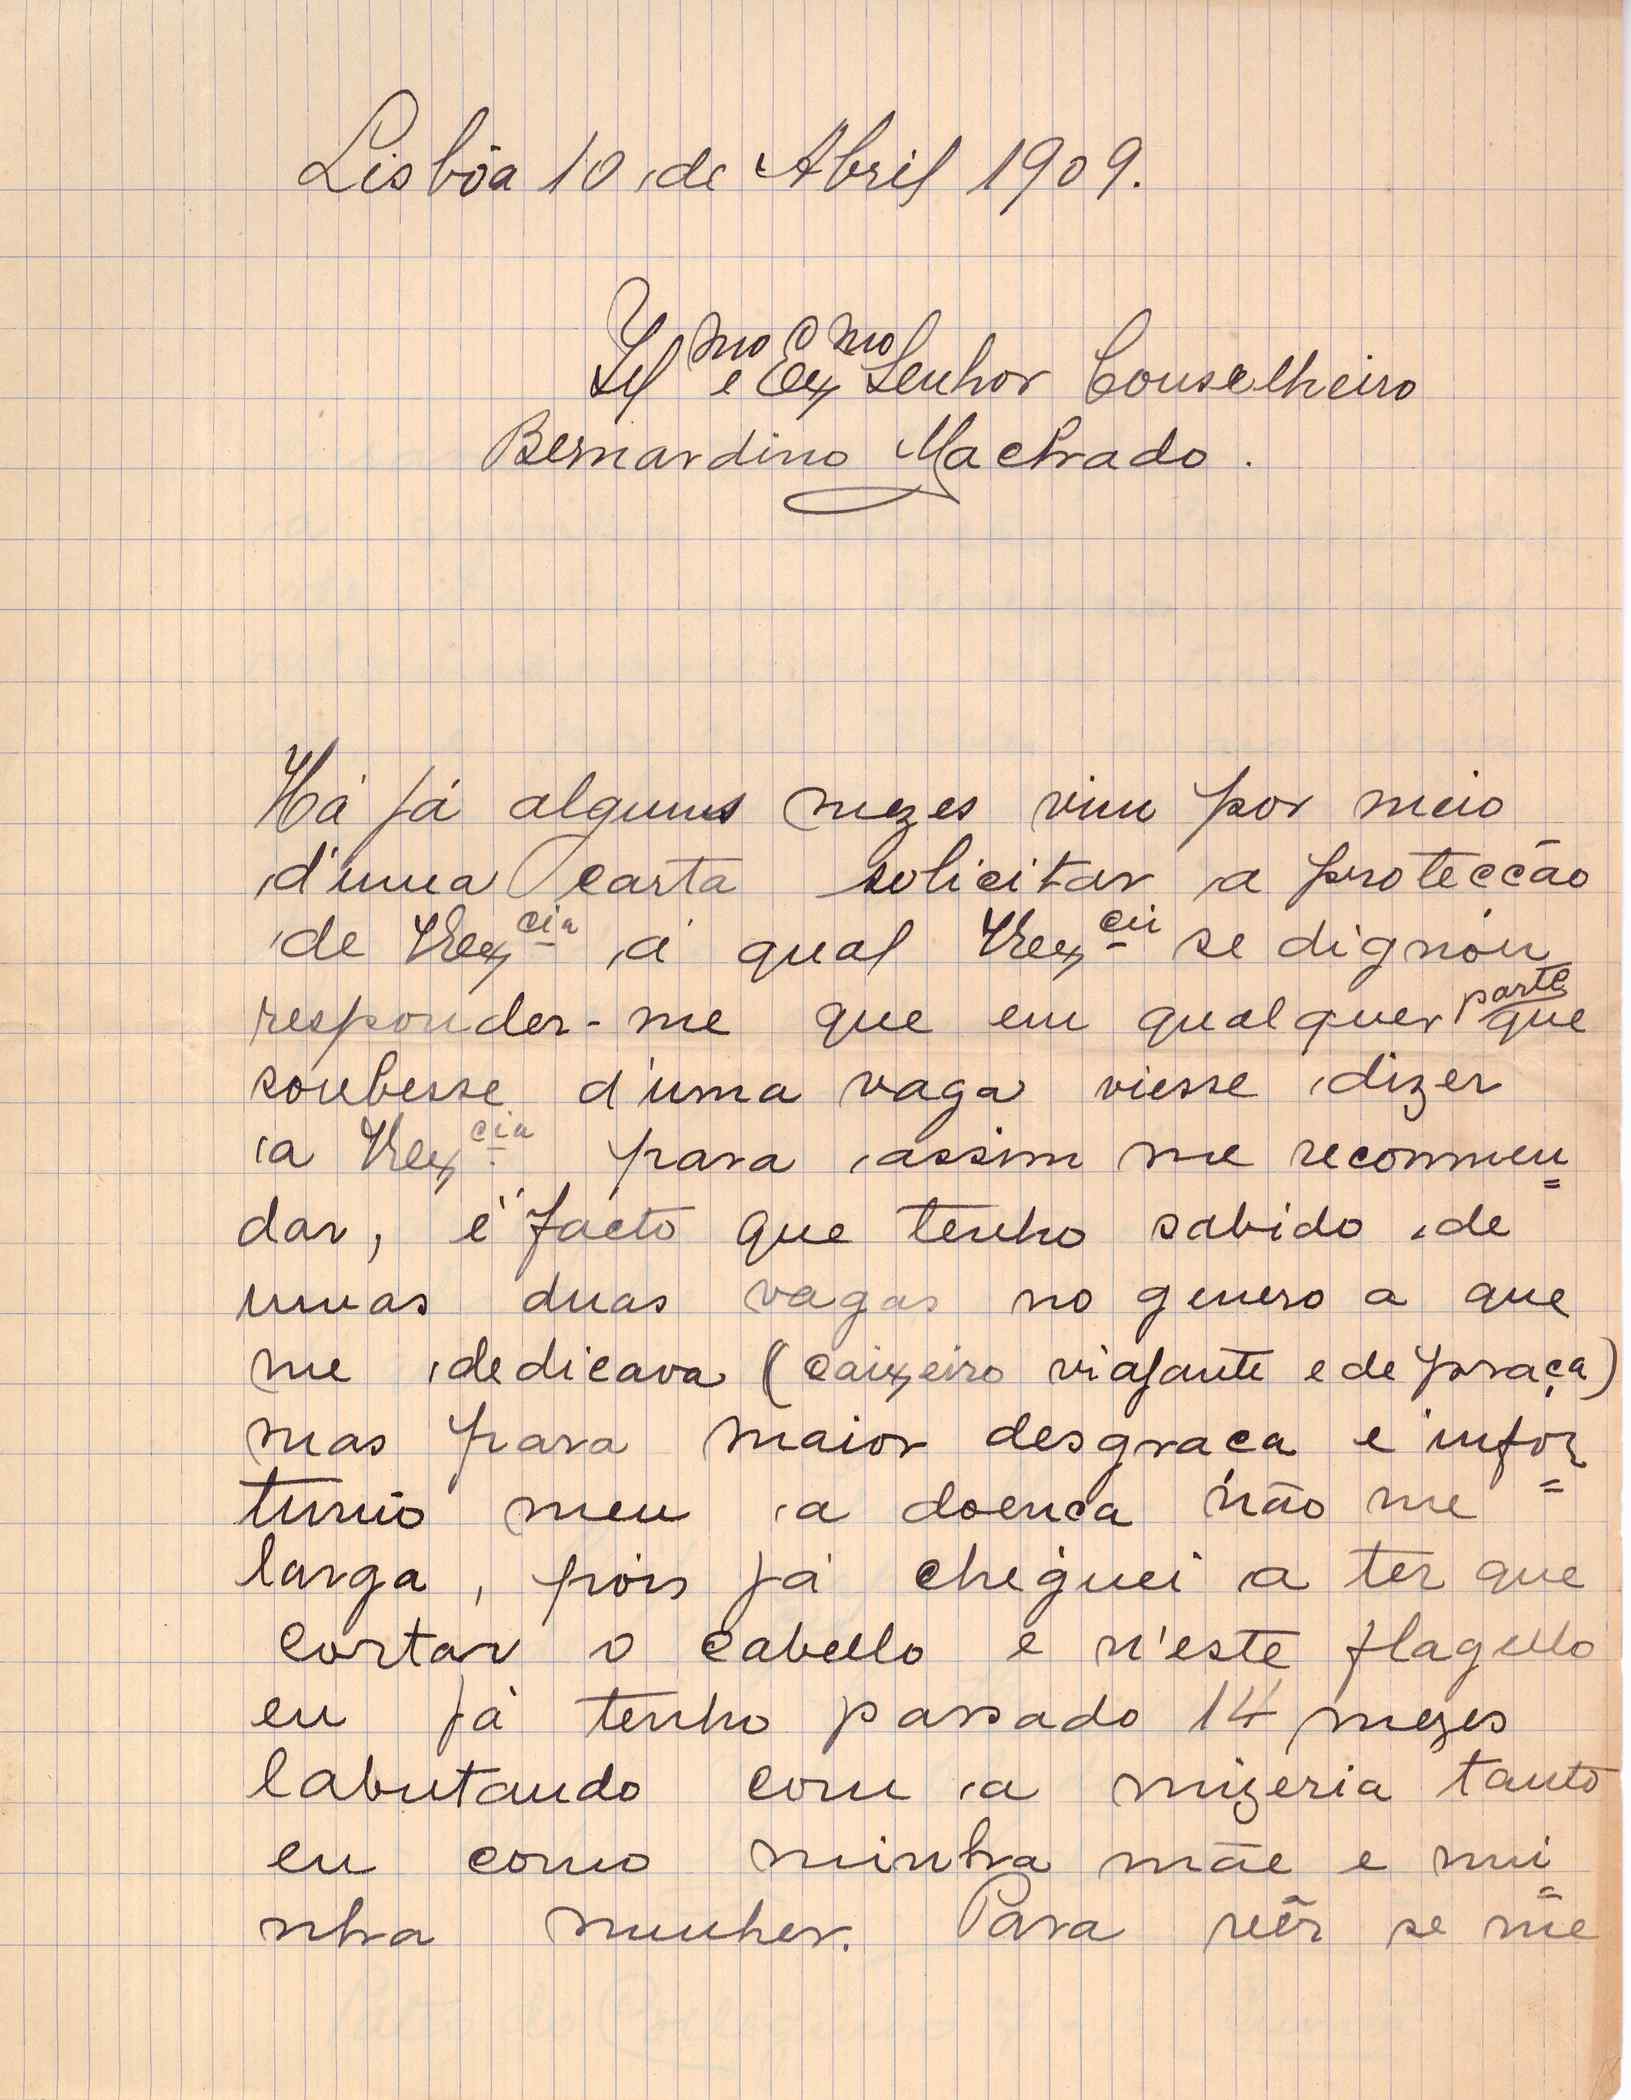 Lisbôa 10 de Abril 1909.
Ill.mo e Ex.mo Senhor Conselheiro
Bernardino Machado.
Há já alguns mezes vim por meio
d'uma carta solicitar a protecção
de VEx.cia á qual VEx.cia se dignou
responder-me que em qualquer parte que
soubesse d'uma vaga viesse dizer
a VEx.cia para assim me recommen=
dar, é facto que tenho sabido de
umas duas vagas no genero a que
me dedicava (caixeiro viajante e de praça)
mas para maior desgraça e infor=
tunio meu a doença não me
larga, pois já cheguei a ter que
cortar o cabello e n'este flagello
eu já tenho passado 14 mezes
labutando com a mizeria tanto
eu como minha mãe e mi=
nha mulher. Para vêr se me